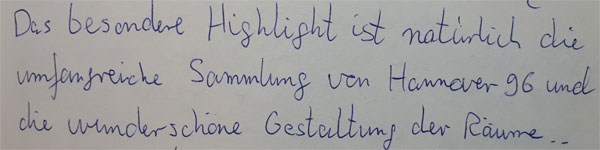 Das besondere Highlight ist natürlich die
umfangreiche Sammlung von Hannover 96 und
die wunderschöne Gestaltung der Räume..